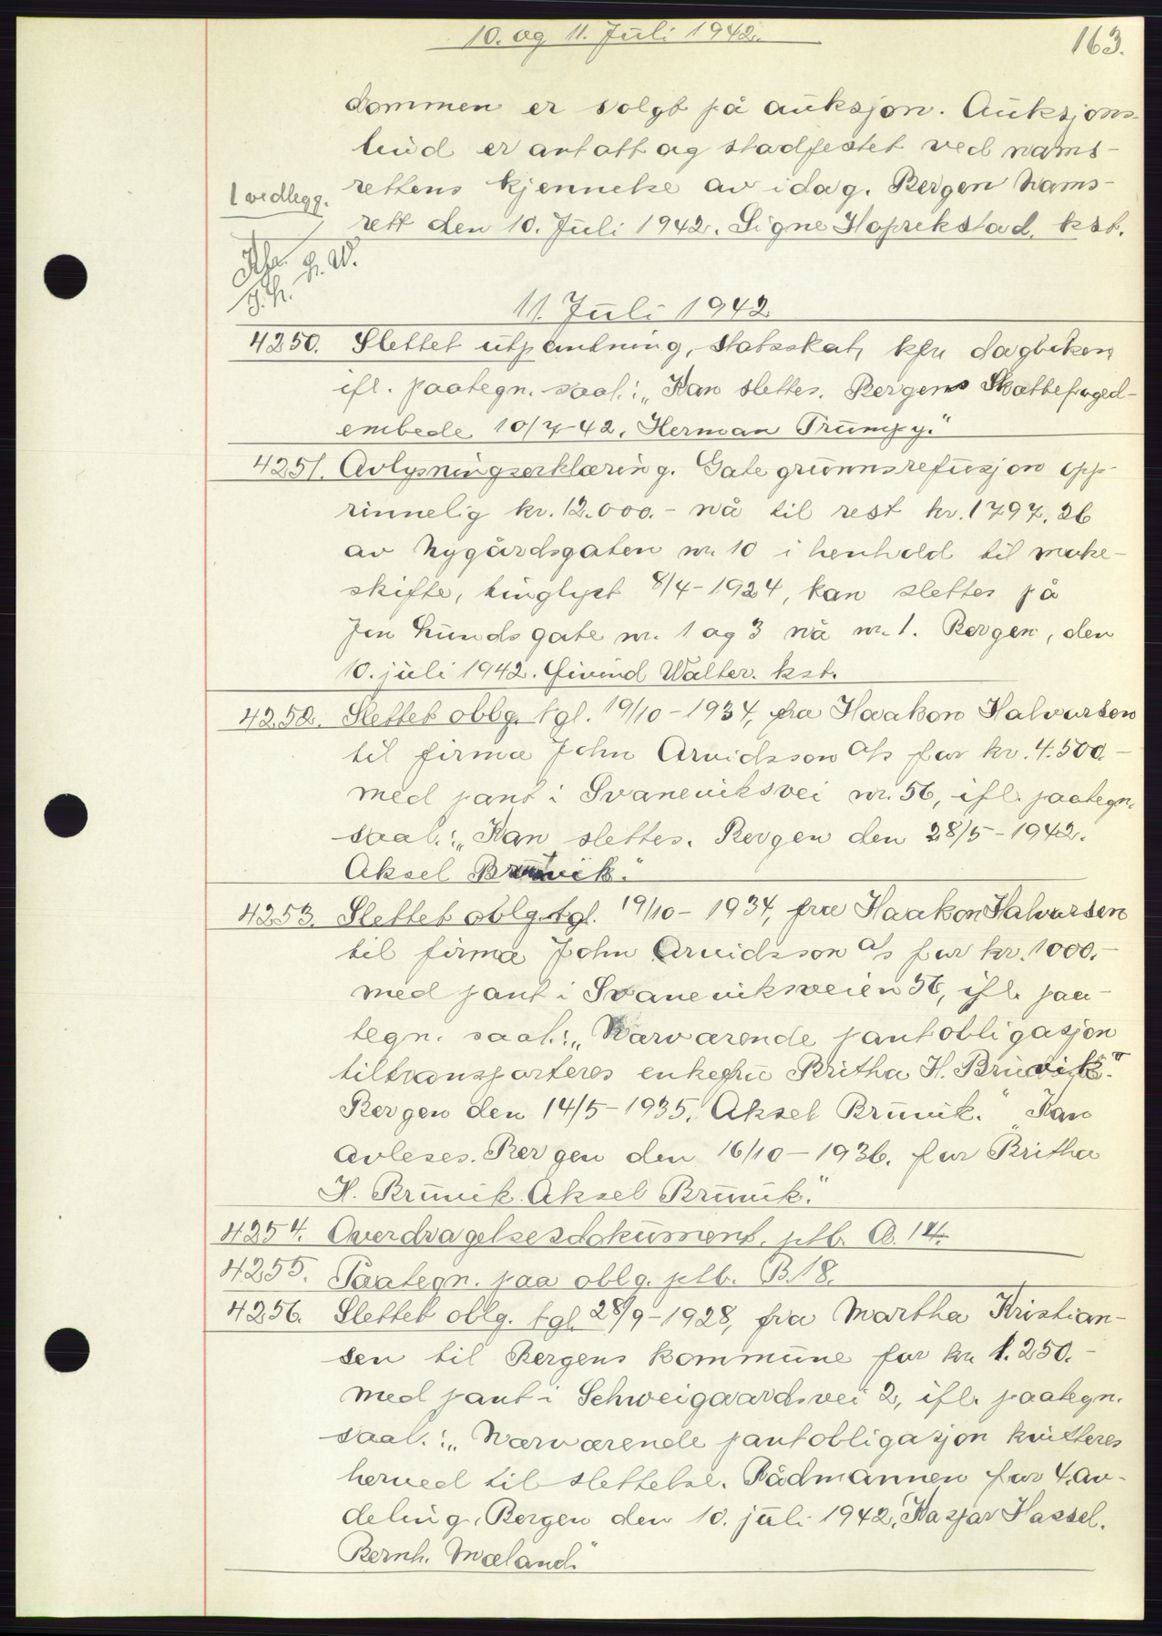 10. og 11. Juli 1942.
163.
dommen er solgt på auksjon. Auksjons-
bud er antatt og stadfestet ved nams-
1 vedlegg.
rettens kjennelse av idag. Bergen Nams-
rett den 10. Juli 1942. Signe Haprekstad, kst.
H. W.
11. Juli 1942
4250. Slettet utpantning, statsskatt, kfr. dagboken
ifl. paategn. saal.: „Kan slettes. Bergens Skattefoged-
embede 10/7-42. Herman Trumpy."
4251. Avlysningserklæring. Gategrunnsrefusjon opp-
rinnelig kr. 12.000.- nå til rest kr. 1797.26
av Nygårdsgaten nr. 10 i henhold til make-
skifte, tinglyst 8/4-1924, kan slettes på
Jon Lunds gate nr. 1 og 3 nå nr. 1. Bergen, den
10. juli 1942. Øivind Walter. kst.
4252. Slettet oblg. tgl. 19/10-1934, fra Haakon Halvorsen
til firma John Arvidsson A/s for kr. 4.500.-
med pant i Svaneviksvei nr. 56, ifl. paategn.
saal.: „Kan slettes. Bergen den 28/5-1942.
Aksel Bruvik."
4253. Slettet oblg. tgl. 19/10-1934, fra Haakon Halvorsen
til firma John Arvidsson A/s for kr. 1000.-
med pant i Svaneviksveien 56, ifl. paa-
tegn. saal.: „Nærværende pantobligasjon
tiltransporteres enkefru Britha H. Bruvik."
Bergen den 14/5-1935. Aksel Bruvik." „Kan
avleses. Bergen den 16/10-1936. for Britha
H. Bruvik. Aksel Bruvik."
4254. Overdragelsesdokument, ptb. A. 14.
4255. Paategn. paa oblg. ptb. B. 18.
4256. Slettet oblg. tgl. 28/9-1928, fra Martha Kristian-
sen til Bergens kommune for kr. 1.250.-
med pant i Schweigaardsvei 2, ifl. paategn.
saal.: „Nærværende pantobligasjon kvitteres
herved til slettelse. Rådmannen for 4. av-
deling, Bergen den 10. juli 1942. Kaspar Hassel.
Bernh. Mæland."